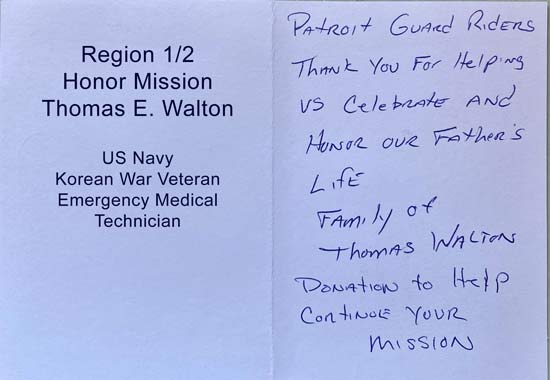 Region 1/2
Honor Mission
Thomas E. Walton
US Navy
Korean War Veteran
Emergency Medical
Technician
Patroit Guard Riders
Thank You For Helping
us Celebrate And
Honor our Father's
Life
Family of
Thomas Walton
Donation to Help
Continue Your
Mission